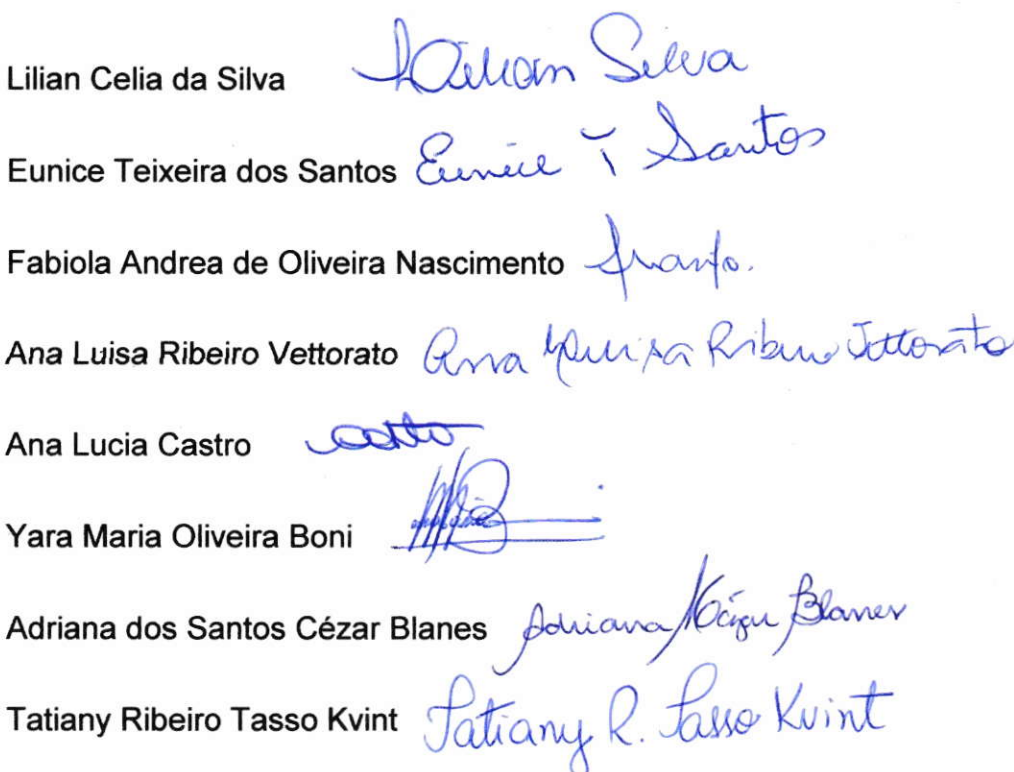 Lilian Celia da Silva Lilian Silva
Eunice Teixeira dos Santos Eunice T Santos
Fabiola Andrea de Oliveira Nascimento
Ana Luisa Ribeiro Vettorato Ana Luisa Ribeiro Vettorato
Ana Lucia Castro
Yara Maria Oliveira Boni
Adriana dos Santos Cézar Blanes Adriana Cézar Blanes
Tatiany Ribeiro Tasso Kvint Tatiany R. Tasso Kvint